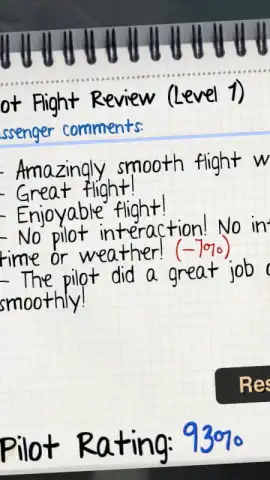 ot Flight Review (Level 1)
ssenger comments:
- Amazingly smooth flight w
- Great flight!
- Enjoyable flight!
- No pilot interaction! No in
time or weather! (-7%)
- The pilot did a great job
smoothly!
Res
Pilot Rating: 93%